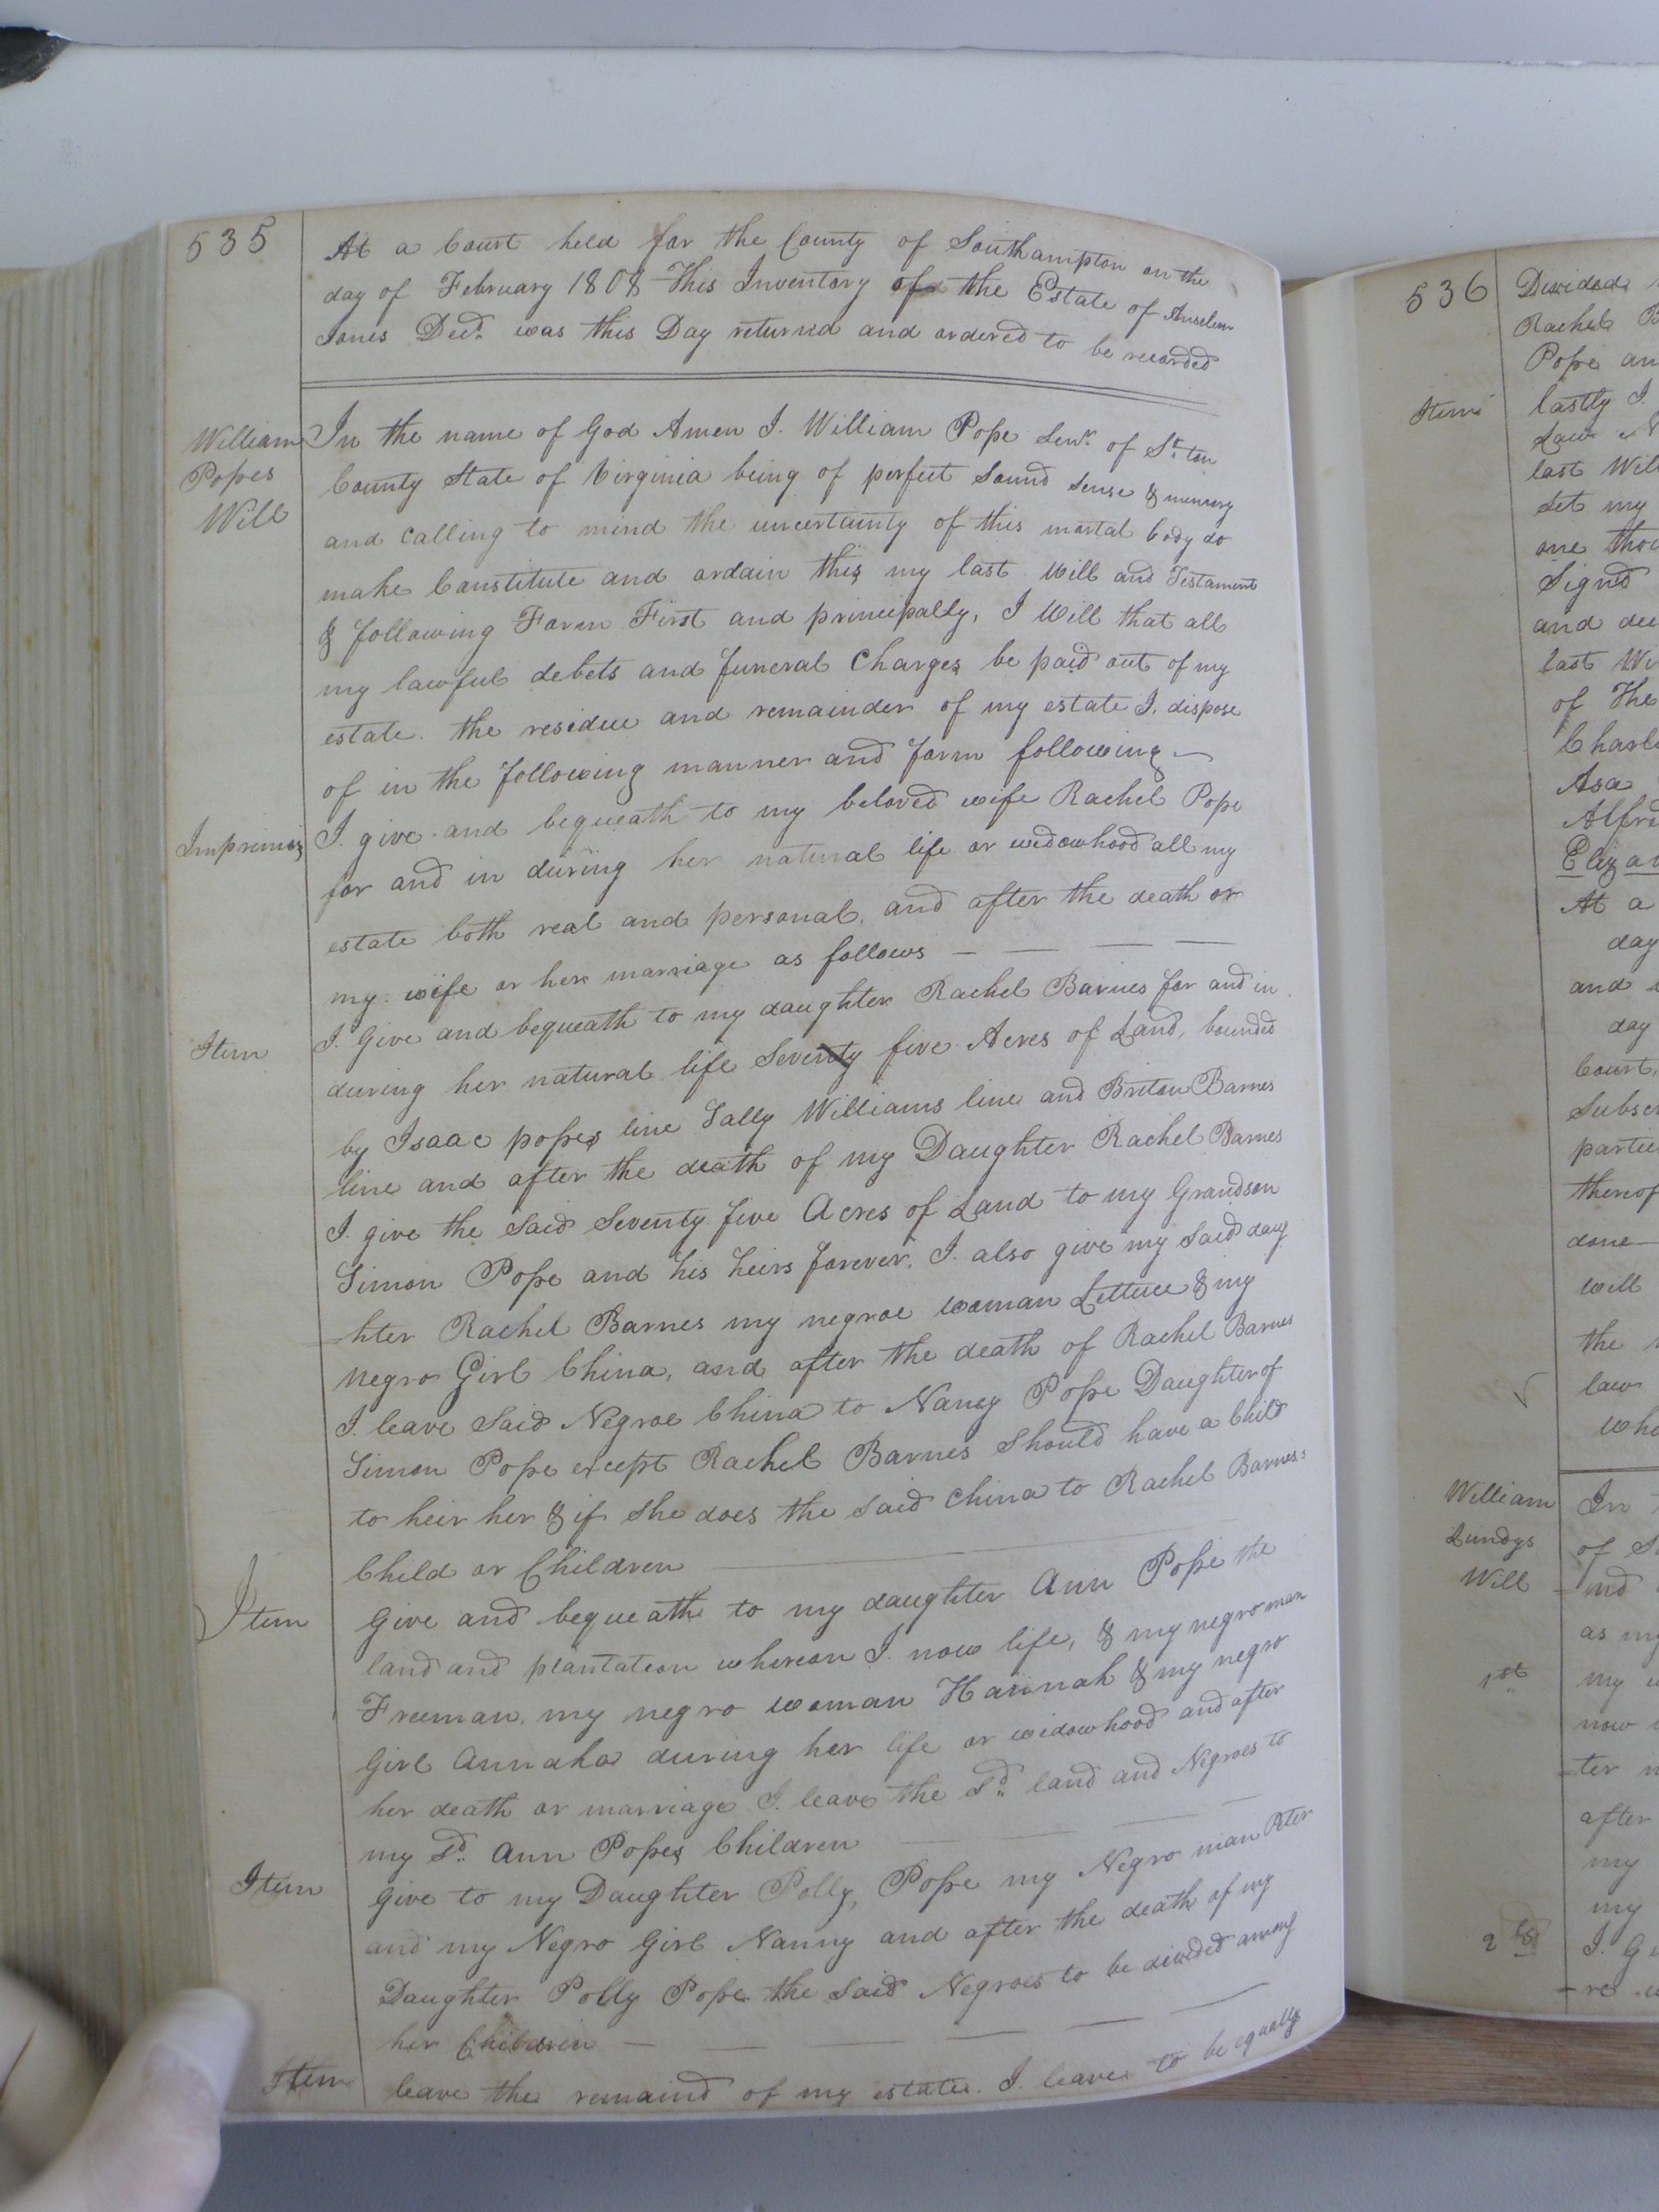 535
At a Court held for the County of Southampton on the
day of February 1808 This Inventory of the Estate of Anselem
Jones Decd. was this Day returned and ordered to be recorded
William
Popes
Will
In the name of God Amen I. William Pope Senr. of St.ton
County State of Virginia being of perfect Sound Sense & memory
and calling to mind the uncertainty of this mortal body do
make Constitute and ordain this my last Will and Testament
& following Form First and principally, I Will that all
my lawful debets and funeral Charges be paid out of my
estate. the residue and remainder of my estate I. dispose
of in the following manner and form following
Imprimas I. give and bequeath to my beloved wife Rachel Pope
for and in during her natural life or widowhood all my
estate both real and personal, and after the death or
my wife or her marriage as follows
Item I. Give and bequeath to my daughter Rachel Barnes for and in
during her natural life Seventy five Acres of Land, bounded
by Isaac popes line Sally Williams line and Briton Barnes
line and after the death of my Daughter Rachel Barnes
I. give the Said Seventy five Acres of Land to my Grandson
Simon Pope and his heirs forever. I. also give my Said daug
hter Rachel Barnes my negroe woman Lettuce & my
negro Girl China, and after the death of Rachel Barnes
I. leave Said Negroe China to Nancy Pope Daughter of
Simon Pope except Rachel Barnes Should have a Child
to heir her & if She does the Said China to Rachel Barnes:
Child or Children
Item Give and bequeath to my daughter Ann Pope the
land and plantation whereon I. now life, & my negro man
Freeman, my negro woman Hannah & my negro
Girl Annaka during her life or widowhood and after
her death or marriage I. leave the Sd. land and Negroes to
my Sd. Ann Popes Children
Item Give to my Daughter Polly Pope my Negro man Peter
and my Negro Girl Nanny and after the death of my
Daughter Polly Pope the Said Negroes to be divided among
her Children
Item leave the remaind of my estate. I. leave to be equally
536
Divided
Rachel
Pope an
Item lastly I.
Law
last Wil
Set my
one thou
Signd
and
last Wi
of The
Charl
Asa
Alfr
Eliza
At a
day
and
day
Court,
Subsc
partie
thereof
done
will
the
law
who
William
Lundys
Will
In
of S
and
as my
1st my
now
ter
after
my
my
2 I. G